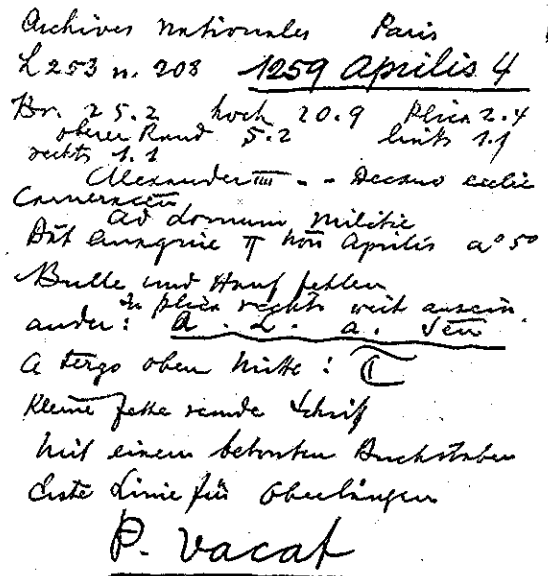 Archives Nationales Paris
L 253 n. 208 1259 Aprilis 4
Br. 25.2 hoch 20.9 Plica 2.4
oberer Rand 5.2 links 1.1
rechts 1.1
Alexander IIII - - Decano ecclie
Cameracen
Ad domum Militie
Dat Anagnie II non Aprilis a° 5°
Bulle und Hanf fehlen
In Plica rechts weit ausein
ander: a . L . a . Sen
A tergo oben Mitte:
Kleine fette runde Schrift
mit einem betonten Buchstaben
Erste Linie für Oberlängen
P. vacat